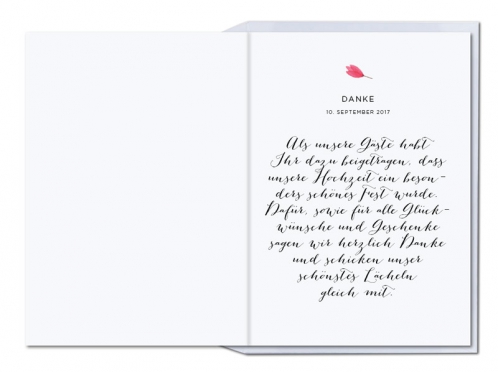 DANKE
10. SEPTEMBER 2017
Als unsere Gäste habt
Ihr dazu beigetragen, dass
unsere Hochzeit ein beson-
ders schönes Fest wurde.
Dafür, sowie für alle Glück-
wünsche und Geschenke
sagen wir herzlich Danke
und schicken unser
schönstes Lächeln
gleich mit.